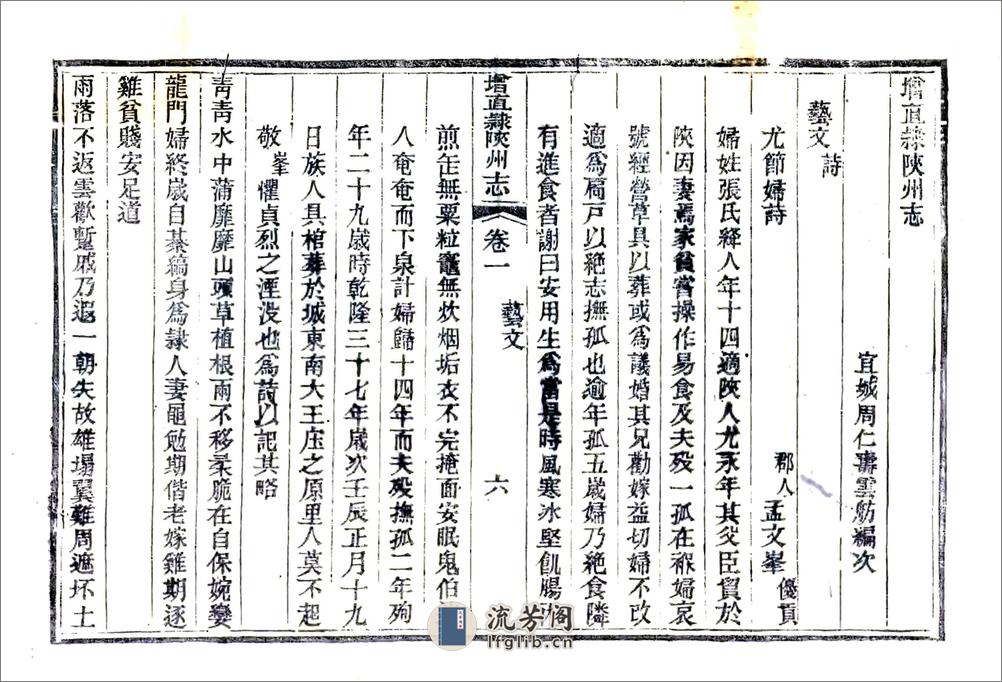 增直隸陝州志
宜城周仁壽雲舫編次
藝文
詩
尤節婦詩
郡人孟文峯優貢
婦姓張氏絳人年十四適陝人尤永年其父臣貿於
陝因妻焉家貧嘗操作易食及夫殁一孤在褓婦哀
號經營草具以葬或爲議婚其兄勸嫁益切婦不改
適爲扃戸以絶志撫孤也逾年孤五歲婦乃絶食隣
有進食者謝曰安用生爲當是時風寒冰堅飢腸
增直隸陝州志
卷一
藝文
六
煎缶無粟粒竈無炊烟垢衣不完掩面安眠鬼伯
八奄奄而下泉計婦歸十四年而夫殁撫孤二年殉
年二十九歲時乾隆三十七年歲次壬辰正月十九
日族人具棺葬於城東南大王庄之原里人莫不起
敬峯懼貞烈之湮没也爲詩以記其略
靑靑水中蒲靡靡山頭草植根兩不移柔脆在自保婉孌
龍門婦終歲自綦縞身爲隸人妻黽勉期偕老嫁雞期逐
雞貧賤安足道
雨落不返雲歡蹔戚乃遐一朝失故雄塌翼難周遮坏土
流芳阁
lfglib.cn